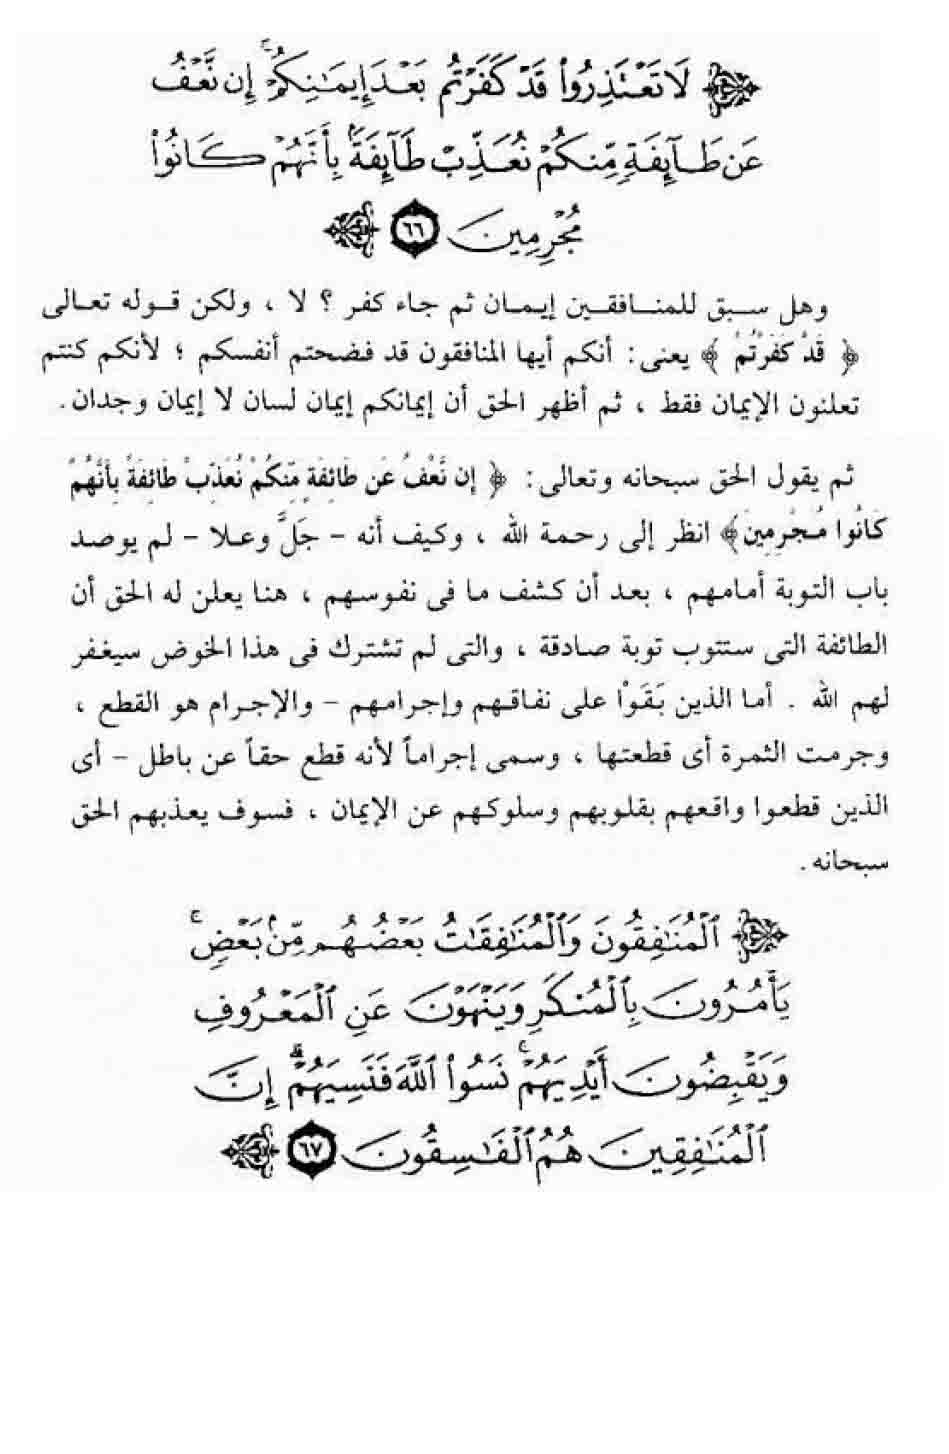 لَا تَعْتَذِرُوا۟ قَدْ كَفَرْتُم بَعْدَ إِيمَـٰنِكُمْ ۚ إِن نَّعْفُ
عَن طَآئِفَةٍ مِّنكُمْ نُعَذِّبْ طَآئِفَةًۢ بِأَنَّهُمْ كَانُوا۟
مُجْرِمِينَ ٦٦
وهل سبق للمنافقين إيمان ثم جاء كفر ؟ لا ، ولكن قوله تعالى
﴿ قَدْ كَفَرْتُمْ ﴾ يعنى: أنكم أيها المنافقون قد فضحتم أنفسكم ؛ لأنكم كنتم
تعلنون الإيمان فقط ، ثم أظهر الحق أن إيمانكم إيمان لسان لا إيمان وجدان.
ثم يقول الحق سبحانه وتعالى: ﴿ إِن نَّعْفُ عَن طَائِفَةٍ مِّنكُمْ نُعَذِّبْ طَائِفَةً بِأَنَّهُمْ
كَانُوا مُجْرِمِينَ﴾ انظر إلى رحمة الله ، وكيف أنه - جَلَّ وعلا - لم يوصد
باب التوبة أمامهم ، بعد أن كشف ما فى نفوسهم ، هنا يعلن له الحق أن
الطائفة التى ستتوب توبة صادقة ، والتى لم تشترك فى هذا الخوض سيغفر
لهم الله . أما الذين بَقَوْا على نفاقهم وإجرامهم - والإجرام هو القطع ،
وجرمت الثمرة أى قطعتها ، وسمى إجراماً لأنه قطع حقاً عن باطل - أى
الذين قطعوا واقعهم بقلوبهم وسلوكهم عن الإيمان ، فسوف يعذبهم الحق
سبحانه.
ٱلْمُنَـٰفِقُونَ وَٱلْمُنَـٰفِقَـٰتُ بَعْضُهُم مِّنۢ بَعْضٍ ۚ
يَأْمُرُونَ بِٱلْمُنكَرِ وَيَنْهَوْنَ عَنِ ٱلْمَعْرُوفِ
وَيَقْبِضُونَ أَيْدِيَهُمْ ۚ نَسُوا۟ ٱللَّهَ فَنَسِيَهُمْ ۗ إِنَّ
ٱلْمُنَـٰفِقِينَ هُمُ ٱلْفَـٰسِقُونَ ٦٧